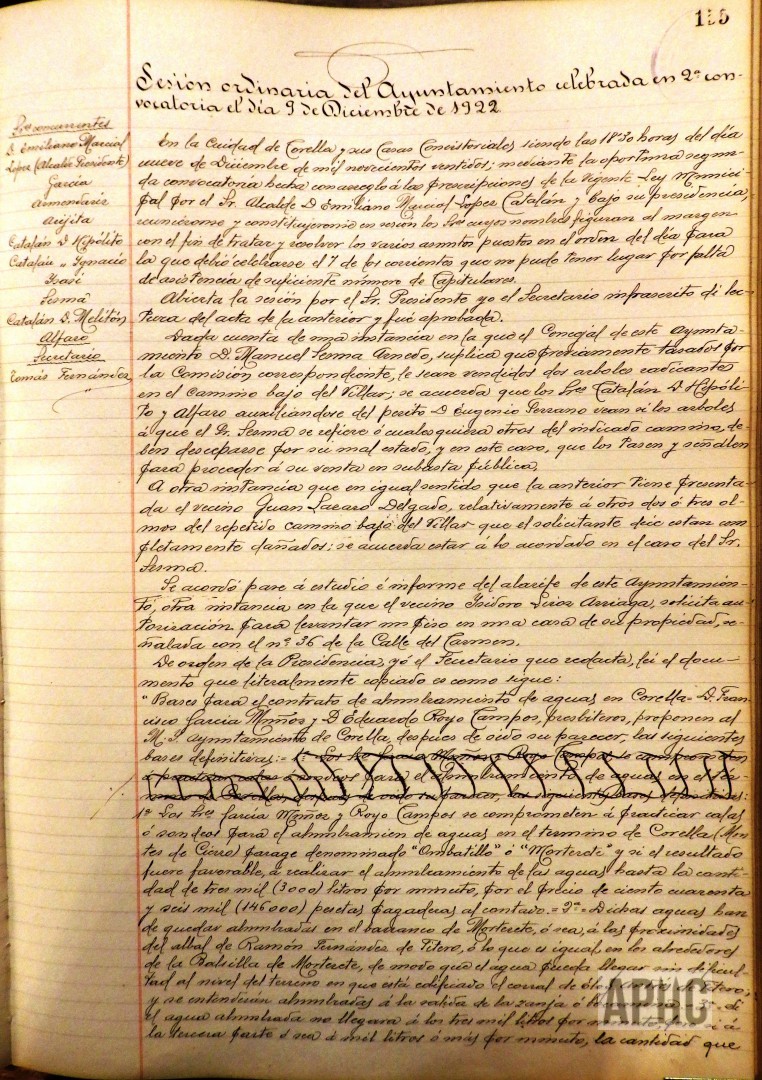 155
Sesión ordinaria del Ayuntamiento celebrada en 2ª con-
vocatoria el día 9 de Diciembre de 1922.
Sres concurrentes
D. Emiliano Marcial
López (Alcalde Presidente)
García
Armendariz
Arigita
Catalán D. Hipólito
Catalán " Ignacio
Isasi
Sesma
Catalán D. Melitón
Alfaro
Secretario
Tomás Fernández
En la Ciudad de Corella y sus Casas Consistoriales siendo las 18'30 horas del día
nueve de Diciembre de mil novecientos ventidos; mediante la oportuna segun-
da convocatoria hecha con arreglo á las prescripciones de la vigente Ley Munici-
pal por el Sr. Alcalde D. Emiliano Marcial Lopez Catalán y bajo su presidencia,
reuniéronse y constituyeronse en sesión los Sres cuyos nombres figuran al margen
con el fin de tratar y resolver los varios asuntos puestos en el orden del día para
la que debió celebrarse el 7 de los corrientes que no pudo tener lugar por falta
de asistencia de suficiente número de Capitulares.
Abierta la sesión por el Sr. Presidente yo el Secretario infrascrito dí lec-
tura del acta de la anterior y fué aprobada.
Dada cuenta de una instancia en la que el Concejal de este Ayunta-
miento D. Manuel Sesma Arnedo, suplica que previamente tasados por
la Comisión correspondiente, le sean vendidos dos arboles radicantes
en el camino bajo del Villar; se acuerda que los Sres Catalán D. Hipóli-
to y Alfaro auxiliandose del perito D. Eugenio Serrano vean si los arboles
á que el Sr. Sesma se refiere ó cualesquiera otros del indicado camino, de-
ben desceparse por su mal estado, y en este caso, que los tasen y señalen
para proceder á su venta en subasta pública.
A otra instancia que en igual sentido que la anterior tiene presenta-
da el vecino Juan Lazaro Delgado, relativamente á otros dos ó tres ol-
mos del repetido camino bajo del Villar que el solicitante dice estan com
pletamente dañados: se acuerda estar á lo acordado en el caso del Sr.
Sesma.
Se acordó pase á estudio é informe del alarife de este Ayuntamien-
to, otra instancia en la que el vecino Isidoro Arriaga, solicita au-
torización para levantar un piso en una casa de su propiedad, se-
ñalada con el nº 36 de la Calle del Carmen.
De orden de la Presidencia, yó el Secretario que redacta, leí el docu-
mento que literalmente copiado es como sigue:
"Bases para el contrato de alumbramiento de aguas en Corella= D. Fran-
cisco Garcia Muñoz y D. Eduardo Royo Campos, presbiteros, proponen al
M. I. Ayuntamiento de Corella, despues de oido su parecer, las siguientes
bases definitivas:= 1ª Los Sres Garcia Muñoz y Royo Campos se comprometen
á practicar sondeos para el alumbramiento de aguas en el
de Corella, despues de oido su parecer, las siguientes bases definitivas:
1ª Los Sres Garcia Muñoz y Royo Campos se comprometen á practicar calas
ó sondeos para el alumbramien de aguas en el termino de Corella (Mon-
tes de Cierzo) parage denominado "Ombatillo" ó "Morterete" y si el resultado
fuere favorable, á realizar el alumbramiento de las aguas hasta la canti-
dad de tres mil (3000) litros por minuto, por el precio de ciento cuarenta
y seis mil (146000) pesetas pagaderas al contado.= 2ª= Dichas aguas han
de quedar alumbradas en el barranco de Morterete, ó sea, á las proximidades
del albal de Ramón Fernández de Titero, ó lo que es igual, en los alrededores
de la Balsilla de Morterete, de modo que el agua pueda llegar sin dificul-
tad al nivel del terreno en que está edificado el corral de
y se entenderán alumbradas á la salida de la zanja ó 3ª= Si
el agua alumbrada no llegara á los tres mil litros por minuto á
la tercera parte ó sea á mil litros ó más por minuto, la cantidad que
APHC